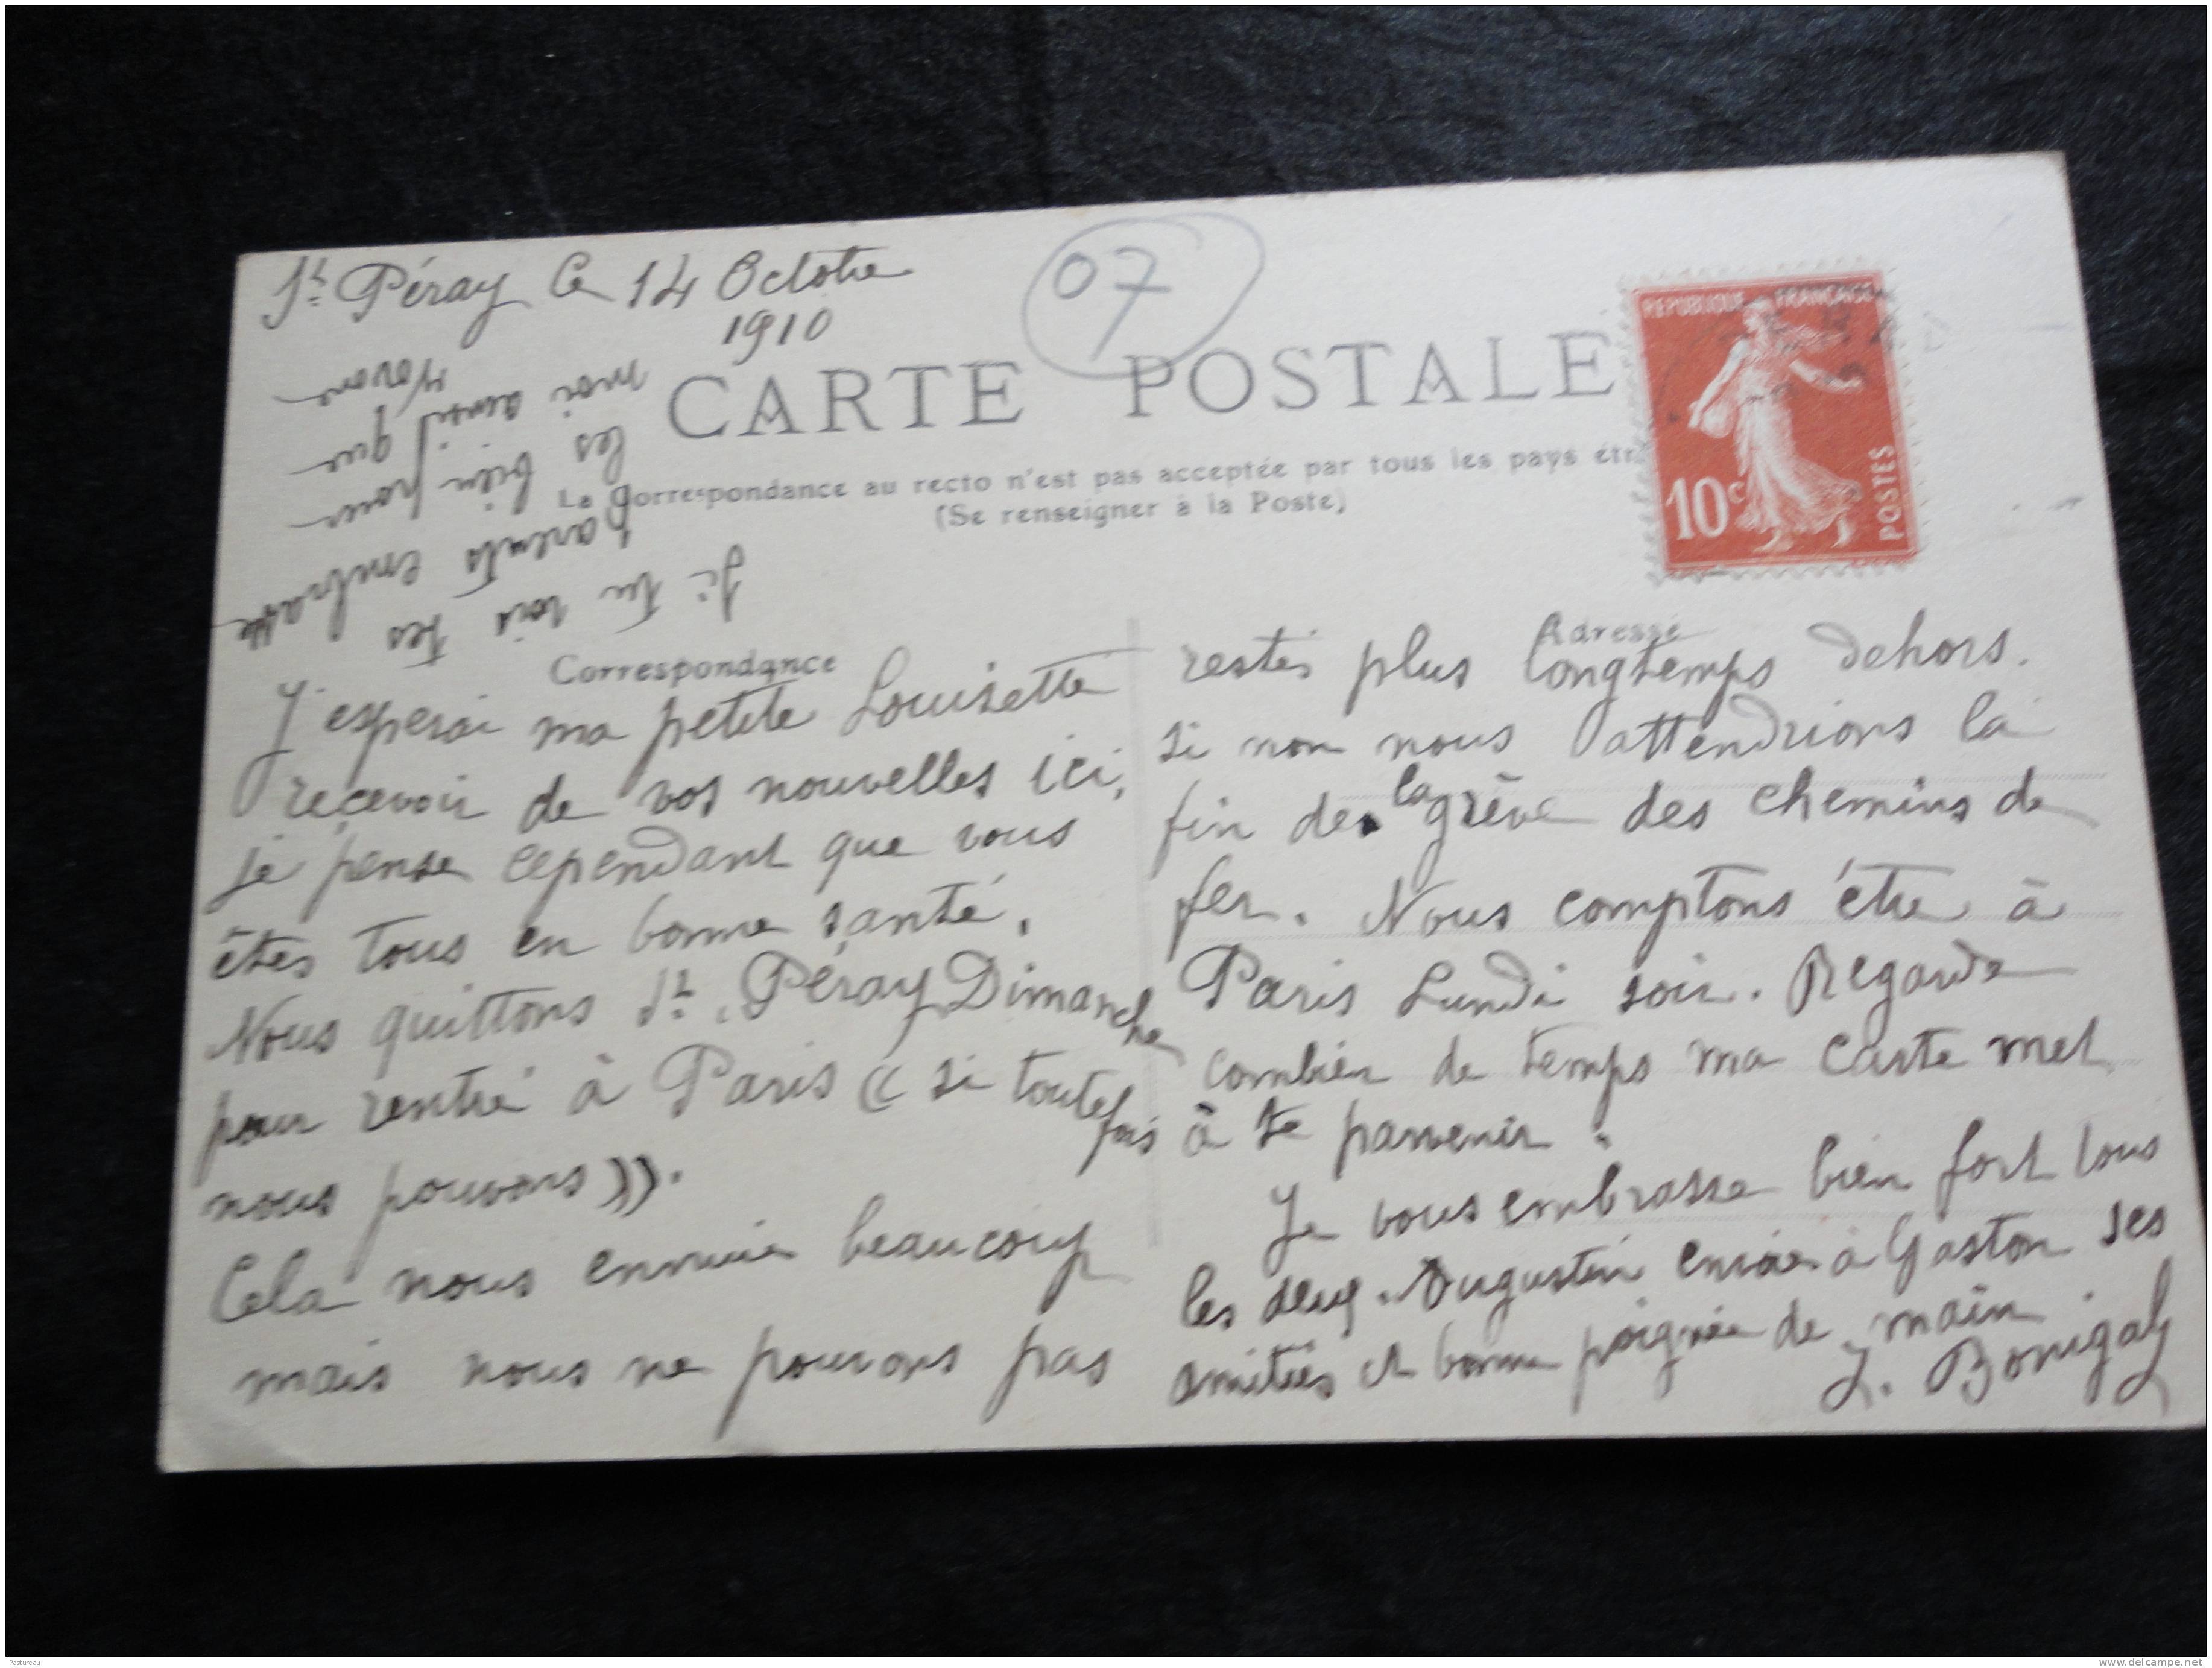 St Péray le 14 Octobre
1910
07
CARTE POSTALE
La Correspondance au recto n'est pas acceptée par tous les pays étr
(Se renseigner à la Poste)
REPUBLIQUE FRANÇAISE
10c
POSTES
Si tu vois tes
parents embrasse
les bien pour
moi ainsi que
Yvonne
Correspondance
J'esperai ma petite Louisette
recevoir de vos nouvelles ici,
je pense cependant que vous
êtes tous en bonne santé.
Nous quittons St. Péray Dimanche
pour rentré à Paris (( si toutefois
nous pouvons )).
Cela nous ennuie beaucoup
mais nous ne pouvons pas
Adresse
restés plus longtemps dehors.
si non nous attendrions la
fin de la grève des chemins de
fer. Nous comptons être à
Paris Lundi soir. Regarde
combien de temps ma carte met
à te parvenir.
Je vous embrasse bien fort tous
les deux. Augustin envoie à Gaston ses
amitiés et bonne poignée de main
Y. Bonigal
Pastureau
www.delcampe.net